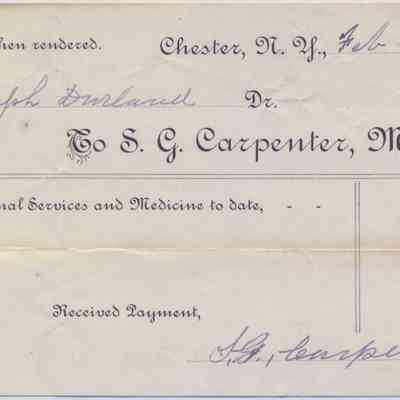 hen rendered. Chester, N. Y., Feb
ph Durland Dr.
To S. G. Carpenter, M
nal Services and Medicine to date, - -
Received Payment,
S. G. Carpe